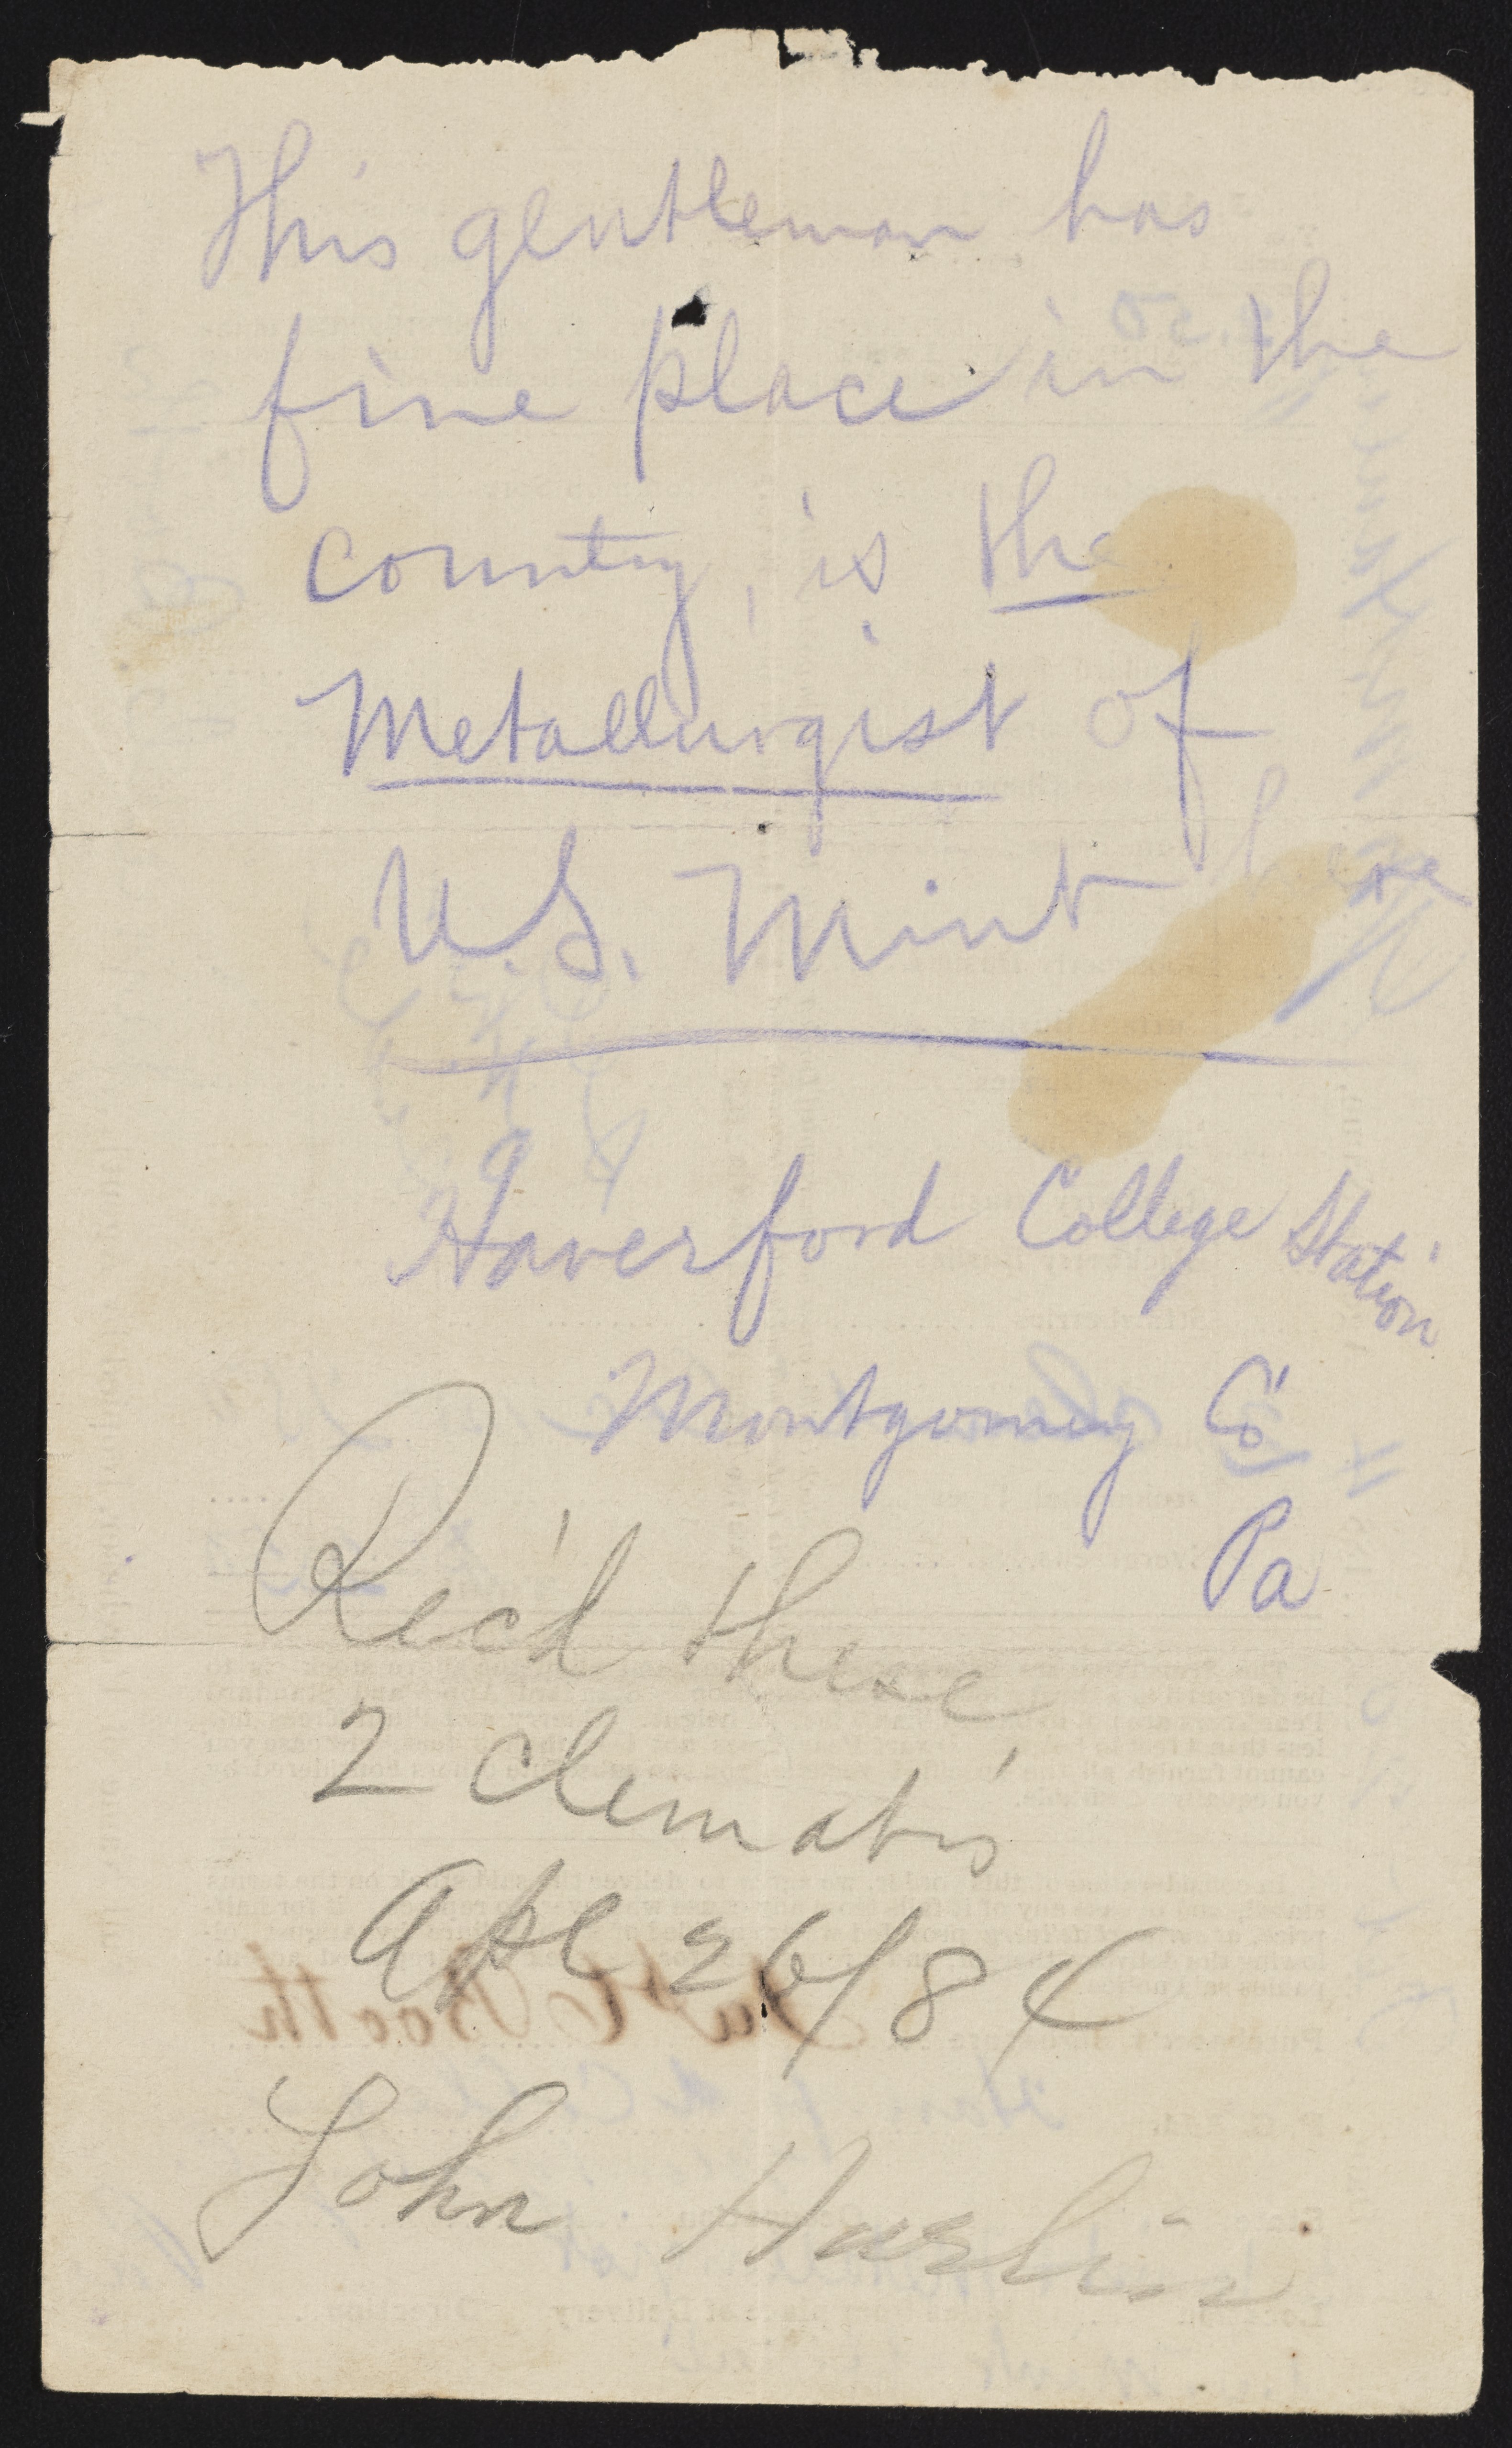 This gentleman has
fine place in the
country, is the
Metallurgist of
U.S. Mint here
Haverford College Station
Montgomery Co
Pa
Rec'd these
2 Clematis
Apl 26/84
John